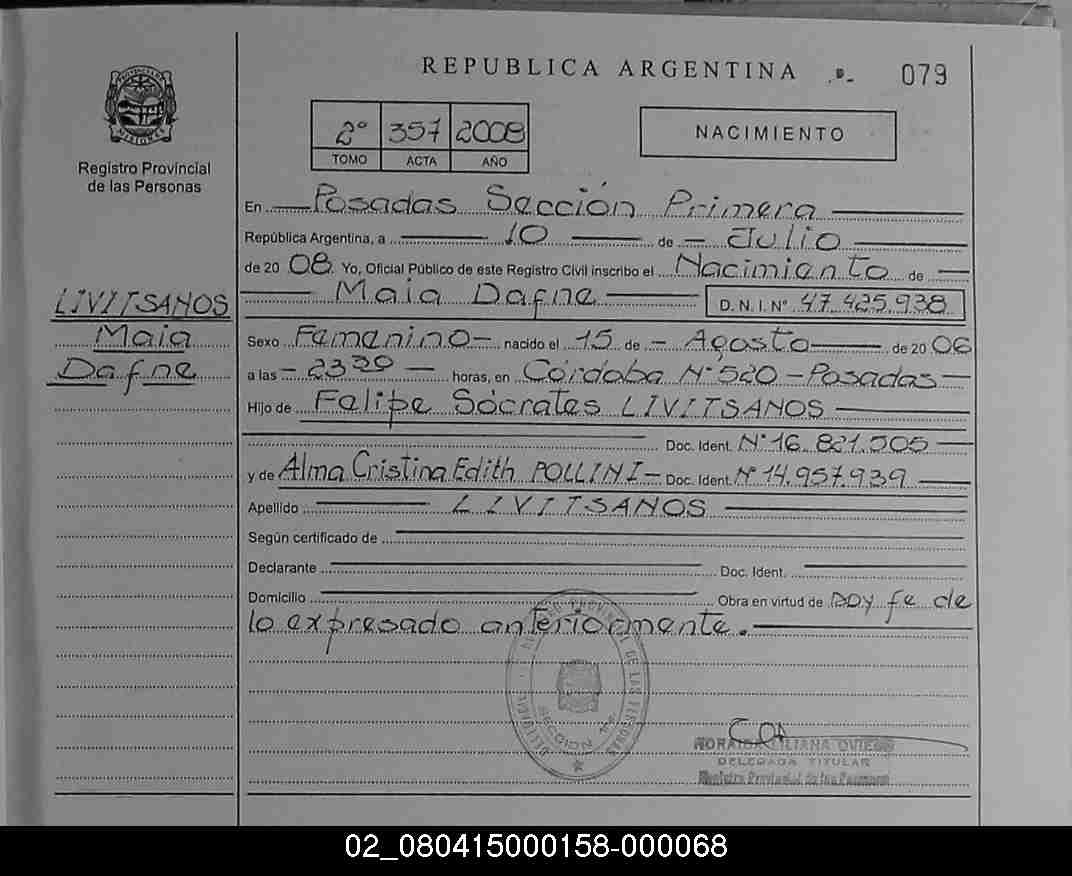 REPUBLICA ARGENTINA
079
PROVINCIA DE MISIONES
Registro Provincial
de las Personas
2° 357 2008
TOMO ACTA AÑO
NACIMIENTO
En Posadas Sección Primera
República Argentina, a 10 de Julio
de 2008. Yo, Oficial Público de este Registro Civil inscribo el Nacimiento de
LIVITSANOS
Maia
Dafne
Maia Dafne D.N.I. N° 47.425.938
Sexo Femenino nacido el 15 de Agosto de 2006
a las 23 horas, en Córdoba N° 520 - Posadas
Hijo de Felipe Sócrates LIVITSANOS
Doc. Ident. N° 16.821.505
y de Alma Cristina Edith POLLINI - Doc. Ident. N° 14.957.939
Apellido LIVITSANOS
Según certificado de
Declarante Doc. Ident.
Domicilio Obra en virtud de Doy fe de
lo expresado anteriormente.
SECCION
LILIANA OVIEDO
DELEGADA TITULAR
Registro Provincial de las Personas
02_080415000158-000068